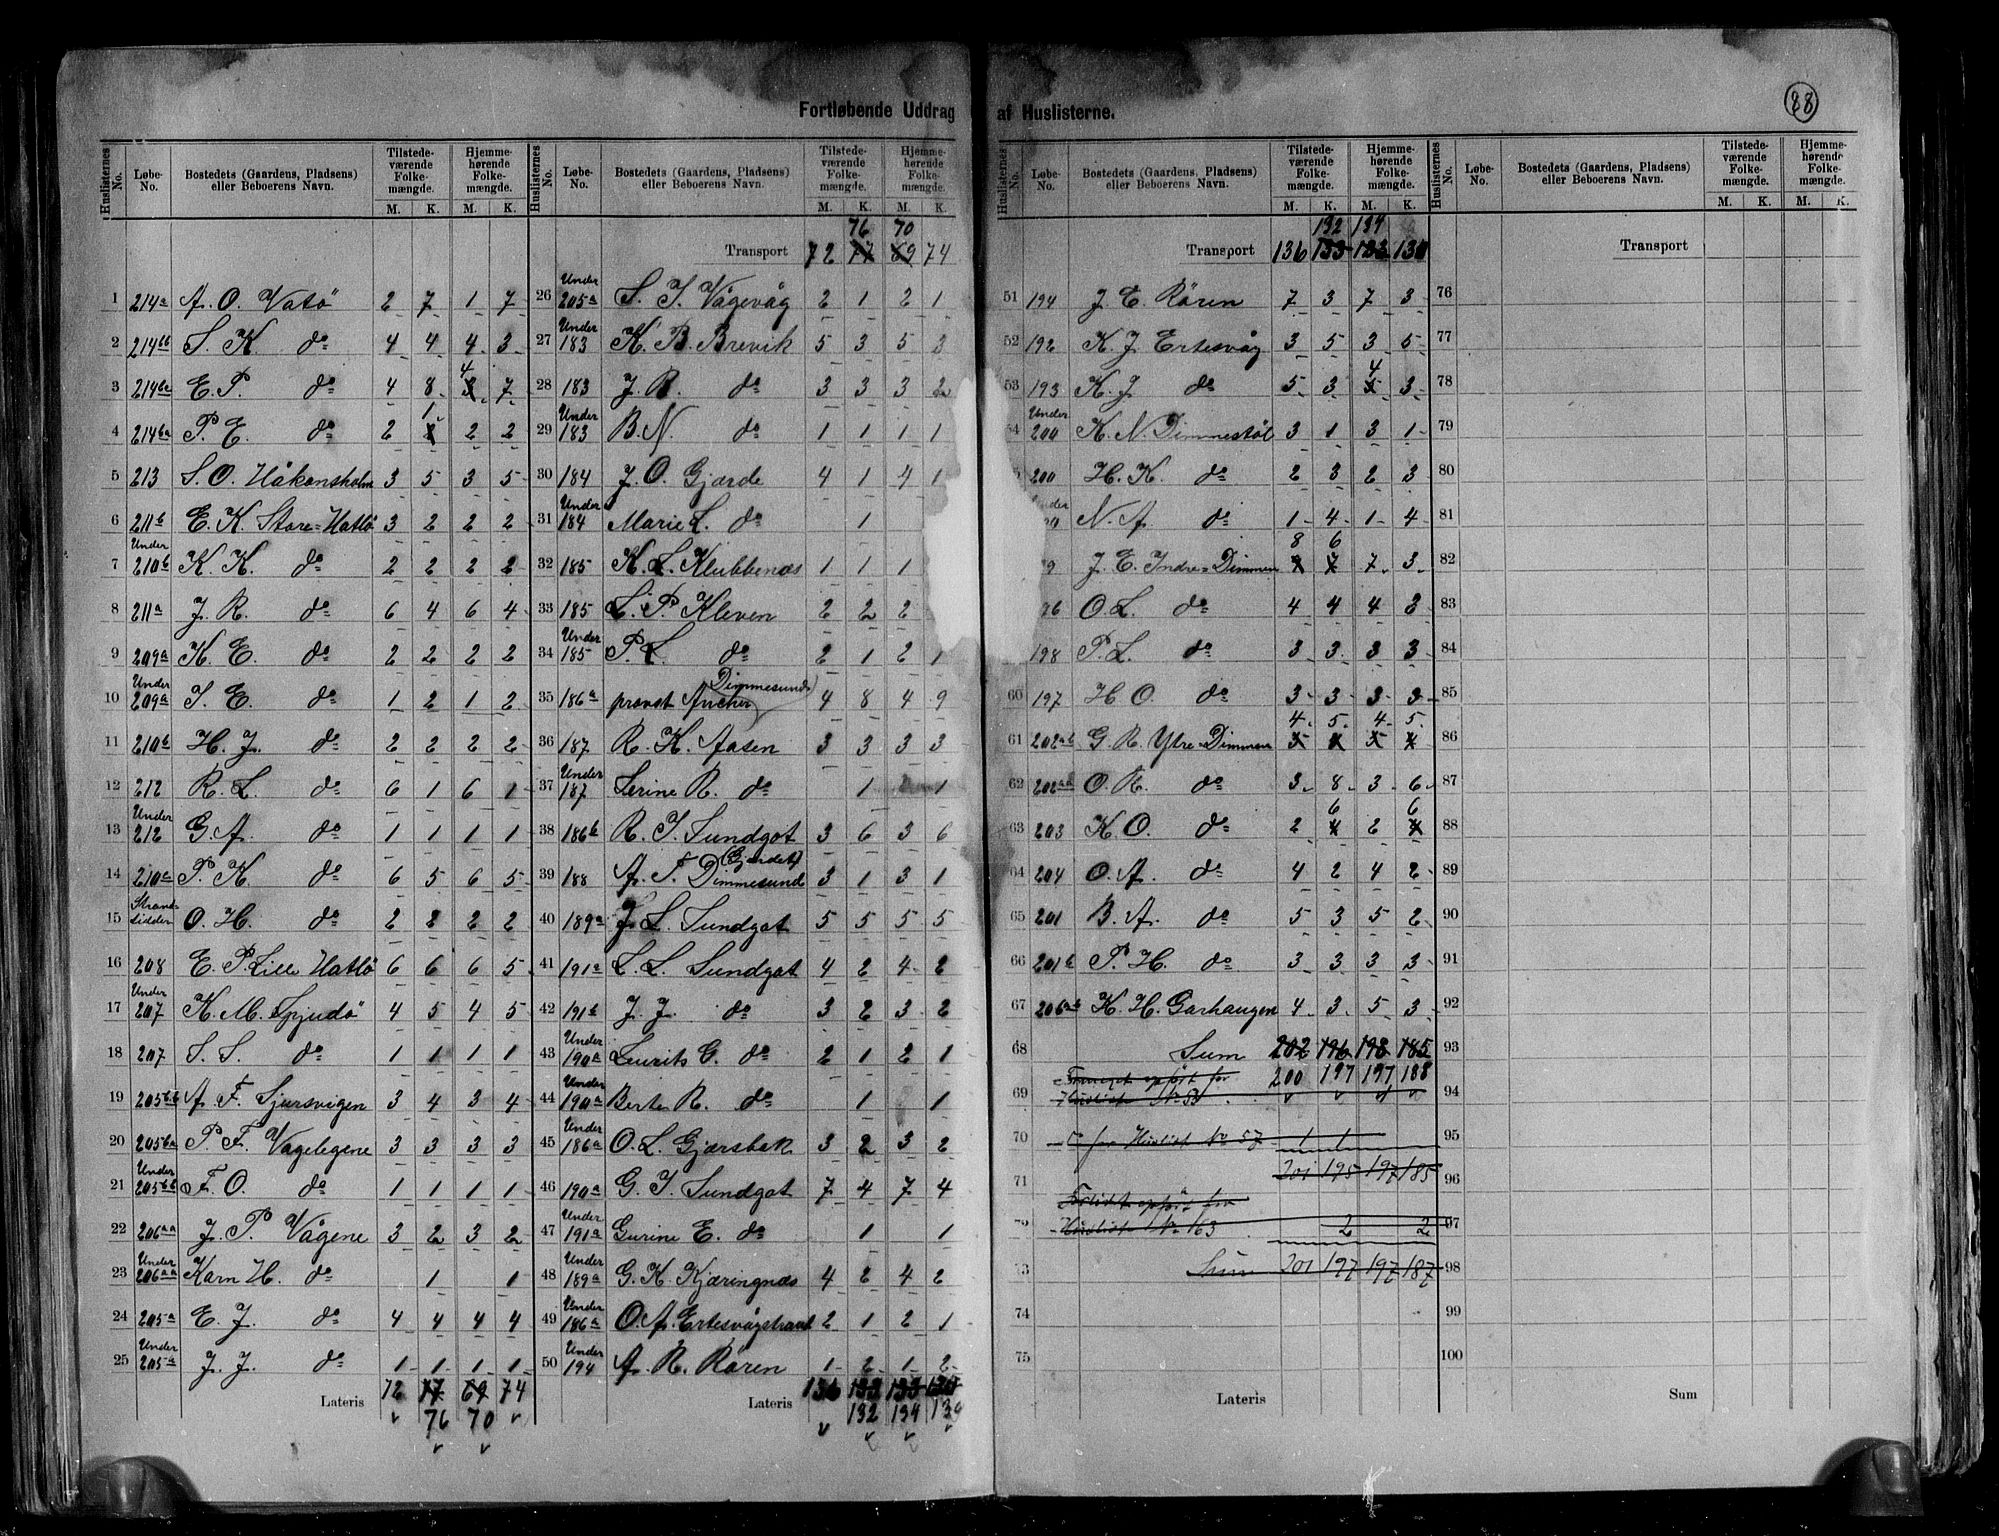 88
Fortløbende Uddrag af Huslisterne.
Huslisternes No. Løbe-No. Bostedets (Gaardens, Pladsens) eller Beboerens Navn. Tilstedeværende Folkemængde. M. K. Hjemmehørende Folkemængde. M. K.
1 214a A. O. Vatö 2 7 1 7
2 214bb S. K. do 4 4 4 3
3 E. P. do 4 8 4 7
4 214ba P. E. do 2 1 2 2
5 213 S. O. Håkonsholm 3 5 3 5
6 211b E. K. Store=Hatlö 3 2 2 2
7 Under 210b K. K. do 2 2 2 2
8 211a J. R. do 6 4 6 4
9 209a K. E. do 2 2 2 2
10 Under 209a I. E. do 1 2 1 2
11 210b H. J. do 2 2 2 2
12 212 R. L. do 6 1 6 1
13 Under 212 G. A. do 1 1 1 1
14 210a P. K. do 6 5 6 5
15 Strandsidder O. H. do 2 2 2 2
16 208 E. P. Lille Hatlö 6 6 6 5
17 Under 207 K. M. Spjudö 4 5 4 5
18 207 S. S. do 1 1 1 1
19 205bb A. F. Sjursvigen 3 4 3 4
20 205ba P. F. Vagelegene 3 3 3 3
21 Under 205bb F. O. do 1 1 1 1
22 206aa J. P. Vågene 3 2 3 2
23 Under 206aa Karn H. do 1 1
24 205a E. J. do 4 4 4 4
25 Under 205a J. J. do 1 1 1 1
Lateris 72 77 69 74
76 70
76 70
Transport 72 77 69 74
26 Under 205a S. I. Vågevåg 2 1 2 1
27 Under 183 K. B. Brevik 5 3 5 3
28 183 J. R. do 3 3 3 2
29 Under 183 B. N. do 1 1 1 1
30 184 J. O. Gjærde 4 1 4 1
31 Under 184 Marie L. do 1
32 185 K. L. Klubbenæs 1 1 1
33 185 L. P. Kleven 2 2 2
34 Under 185 P. L. do 2 1 2 1
35 186a provst Aucher (Dimmesund) 4 8 4 9
36 187 R. K. Aasen 3 3 3 3
37 Under 187 Serine R. do 1 1
38 186b R. I. Sundgot 3 6 3 6
39 188 A. T. Dimmesund (Gjerdet) 3 1 3 1
40 189a J. L. Sundgot 5 5 5 5
41 191a L. L. Sundgot 4 2 4 2
42 191b J. J. do 3 2 3 2
43 Under 190a Laurits G. do 2 1 2 1
44 Under 190a Berte R. do 1 1
45 Under 186a O. L. Gjærsbak 3 2 3 2
46 190a G. I. Sundgot 7 4 7 4
47 Under 191a Gurine E. do 1 1
48 Under 189a G. K. Kjæringnæs 4 2 4 2
49 Under 186a O. A. Ertesvågstrand 2 1 2 1
50 Under 194 A. R. Røren 1 2 1 2
Lateris 136 133 133 130
132 134
132 134
Transport 136 133 133 130
51 194 J. E. Røren 7 3 7 3
52 192 K. J. Ertesvåg 3 5 3 5
53 193 K. J. do 5 3 4 3
54 Under 200 K. N. Dimmestöl 3 1 3 1
200 H. K. do 2 3 2 3
N. A. do 1 4 1 4
J. E. Indre=Dimmen 8 6 7 3
O. L. do 4 4 4 3
198 P. L. do 3 3 3 3
60 197 H. O. do 3 3 3 3
61 202ab G. R. Ytre=Dimmen 4 5 4 5
62 202aa O. R. do 3 8 3 6
63 203 K. O. do 2 6 2 6
64 204 O. A. do 4 2 4 2
65 201 B. A. do 5 3 5 2
66 201b P. H. do 3 3 3 3
67 206ab K. H. Garhaugen 4 3 5 3
68 Sum 202 196 198 185
69 200 197 197 188
70 for Husliste No 57 1 1
71 201 195 197 185
72 Husliste No 63 2 2
73 Sum 201 197 197 187
74
75
Lateris
Transport
76
77
78
79
80
81
82
83
84
85
86
87
88
89
90
91
92
93
94
95
96
97
98
99
100
Sum